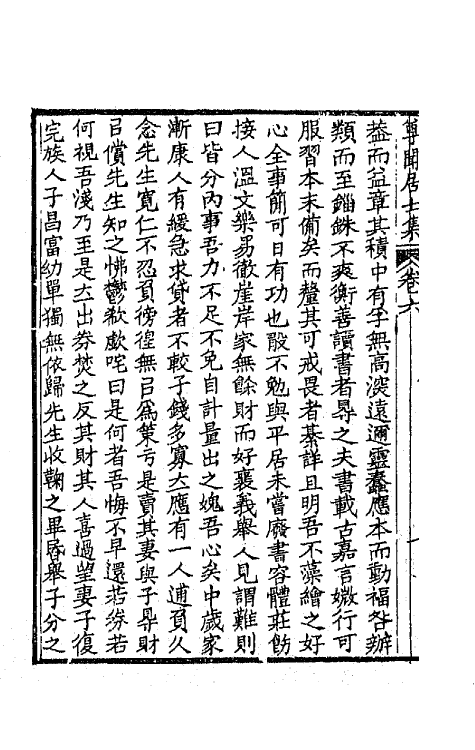 尊聞居士集 卷六
葢而益章其積中有孚無高深遠邇靈蠢應本而動福咎辦
類而至錙銖不爽衡善讀書者㝵之夫書載古嘉言媺行可
服習本末僃矣而釐其可戒畏者綦詳且明吾不藻繪之好
心全事簡可日有功也敢不勉與平居未嘗廢書容體莊飭
接人溫文樂易徹崖岸家無餘財而好襄義舉人見謂難則
曰皆分內事吾力不足不免自計量出之媿吾心矣中歲家
漸康人有緩急求貸者不較子錢多寡大應有一人逋負久
念先生寬仁不忍負徬徨無㠯爲策亏是賣其妻與子㝵財
㠯償先生知之怫鬱欷歔咤曰是何者吾悔不早還若券若
何視吾淺乃至是大出券焚之反其財其人喜過望妻子復
完族人子昌富幼單獨無依歸先生收鞠之畢㫺舉子分之